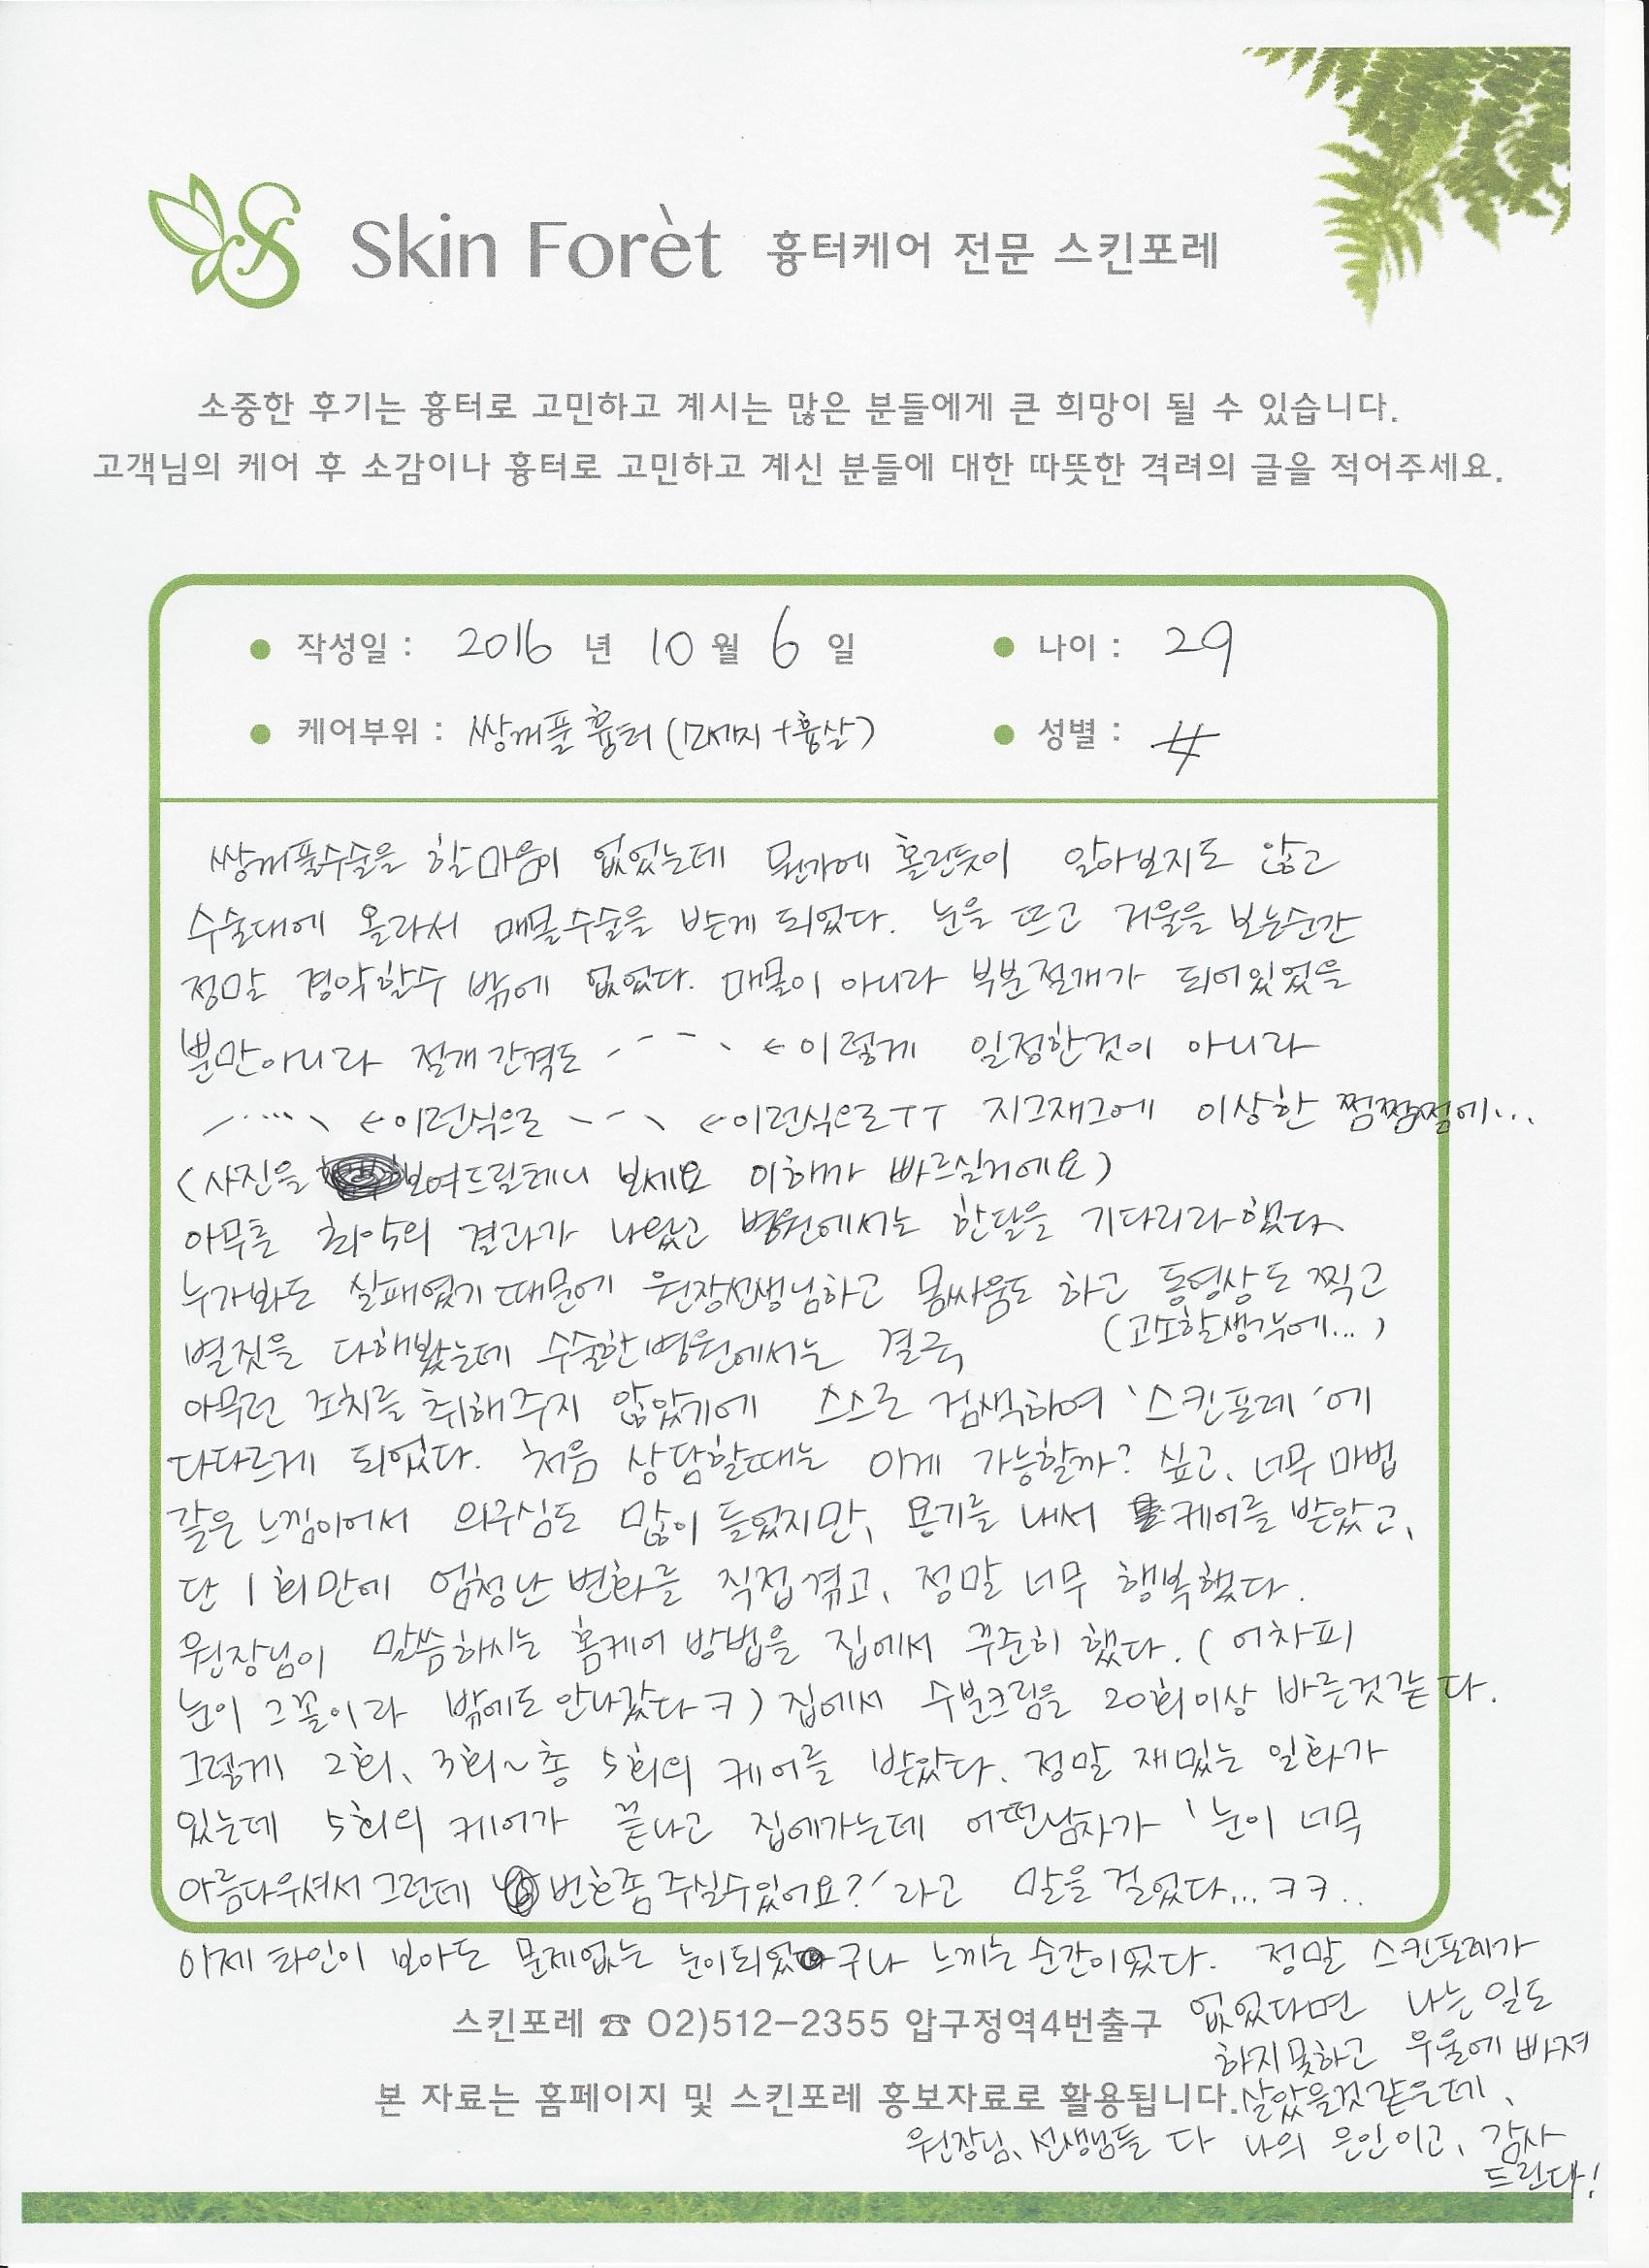 Skin Forèt 흉터케어 전문 스킨포레
소중한 후기는 흉터로 고민하고 계시는 많은 분들에게 큰 희망이 될 수 있습니다.
고객님의 케어 후 소감이나 흉터로 고민하고 계신 분들에 대한 따뜻한 격려의 글을 적어주세요.
● 작성일 : 2016 년 10 월 6 일 ● 나이 : 29
● 케어부위 : 쌍꺼풀 흉터 (소세지 +흉살) ● 성별 : 女
쌍꺼풀수술을 할마음이 없었는데 뭔가에 홀린듯이 알아보지도 않고
수술대에 올라서 매몰수술을 받게 되었다. 눈을 뜨고 거울을 보는순간
정말 경악할수 밖에 없었다. 매몰이 아니라 부분절개가 되어있었을
뿐만아니라 절개간격도 ←이렇게 일정한것이 아니라
←이런식으로 ←이런식으로ㅜㅜ 지그재그에 이상한 찜찜쩜에...
(사진을 보여드릴테니 보세요 이해가 빠르실거에요)
아무튼 최악의 결과가 나왔고 병원에서는 한달을 기다리라했다
누가봐도 실패였기때문에 원장선생님하고 몸싸움도 하고 동영상도 찍고
(고소할생각에...)
별짓을 다해봤는데 수술한병원에서는 결국
아무런 조치를 취해주지 않았기에 스스로 검색하여 '스킨포레'에
다다르게 되었다. 처음 상담할때는 이게 가능할까? 싶고, 너무 마법
같은 느낌이어서 의구심도 많이 들었지만, 용기를 내서 케어를 받았고,
단 1회만에 엄청난 변화를 직접겪고, 정말 너무 행복했다.
원장님이 말씀하시는 홈케어 방법을 집에서 꾸준히 했다. (어차피
눈이 그꼴이라 밖에도 안나갔다ㅋ) 집에서 수분크림을 20회이상 바른것같다.
그렇게 2회, 3회~총 5회의 케어를 받았다. 정말 재밌는 일화가
있는데 5회의 케어가 끝나고 집에가는데 어떤남자가 '눈이 너무
아름다우셔서 그런데 번호좀 주실수있어요?'라고 말을 걸었다... ㅋㅋ..
이제 타인이 보아도 문제없는 눈이되었구나 느끼는 순간이었다. 정말 스킨포레가
없었다면 나는 일도
하지못하고 우울에 빠져
살았을것같은데,
원장님, 선생님들 다 나의 은인이고, 감사
드린다!
스킨포레 ☎ 02)512-2355 압구정역4번출구
본 자료는 홈페이지 및 스킨포레 홍보자료로 활용됩니다.